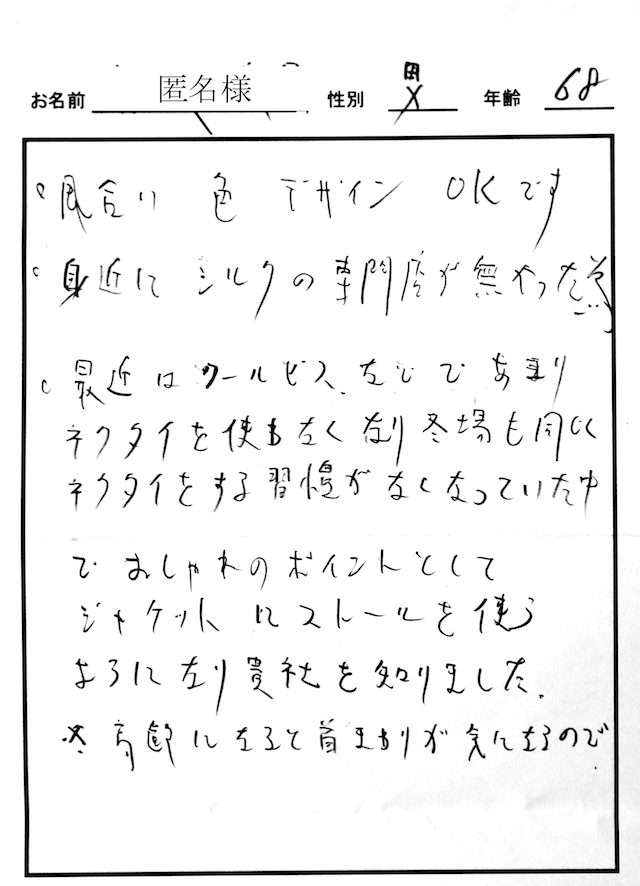 お名前 匿名様 性別 男 年齢 68
・風合い 色 デザイン OKです
・身近に シルクの専門店が無かった
・最近はクールビズなどであまり
ネクタイを使わなくなり冬場も同じく
ネクタイをする習慣がなくなっていた中
でおしゃれのポイントとして
ジャケットにストールを使う
ように なり貴社を知りました。
※高齢になると首まわりが気になるので